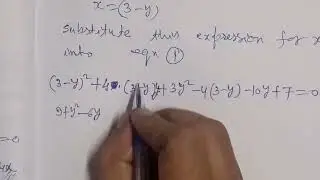 x = (3-y)
substitute this expression for x
into eqn ①
(3-y)² + 4 · (3-y)y + 3y² - 4(3-y) - 10y + 7 = 0
9 + y² - 6y
= 0